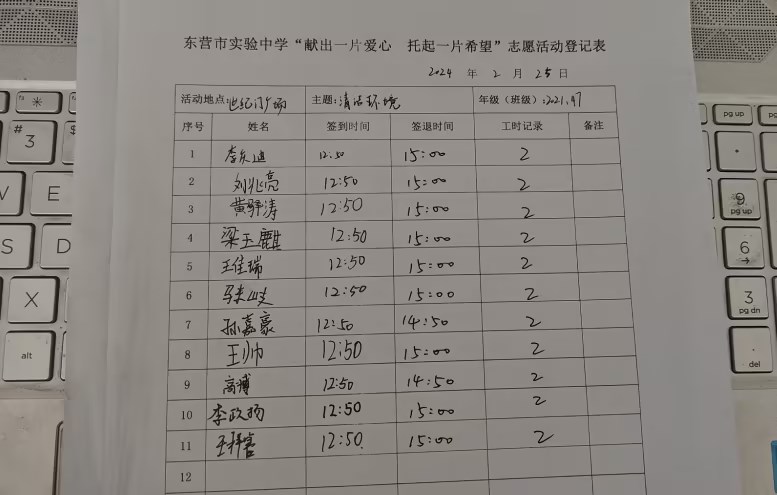 东营市实验中学“献出一片爱心 托起一片希望”志愿活动登记表
2024 年 2 月 25 日
活动地点:世纪广场 主题:清洁环境 年级(班级):2021.47
序号 姓名 签到时间 签退时间 工时记录 备注
1 12:50 15:00 2
2 刘兆亮 12:50 15:00 2
3 黄驿涛 12:50 15:00 2
4 梁玉麒 12:50 15:00 2
5 王佳瑞 12:50 15:00 2
6 12:50 15:00 2
7 孙嘉豪 12:50 14:50 2
8 王帅 12:50 15:00 2
9 高博 12:50 14:50 2
10 李政扬 12:50 15:00 2
11 12:50 15:00 2
12
*
#
3
$
E
S
D
X
alt
pg up
9
pg up
6
→
3
pg dn
.
del